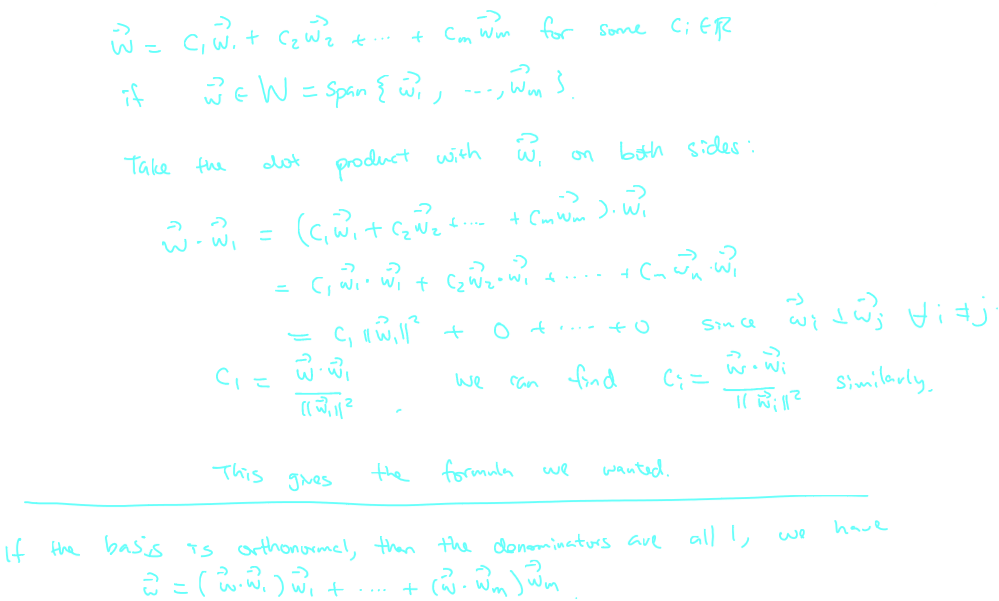 w⃗ = c₁w⃗₁ + c₂w⃗₂ + ⋯ + cₘw⃗ₘ for some cᵢ ∈ ℝ
if w⃗ ∈ W = span { w⃗₁ , ..., w⃗ₘ }.
Take the dot product with w⃗₁ on both sides:
w⃗ · w⃗₁ = (c₁w⃗₁ + c₂w⃗₂ + ⋯ + cₘw⃗ₘ) · w⃗₁
= c₁w⃗₁ · w⃗₁ + c₂w⃗₂ · w⃗₁ + ⋯ + cₙw⃗ₙ · w⃗₁
= c₁||w⃗₁||² + 0 + ⋯ + 0 since w⃗ᵢ ⊥ w⃗ⱼ ∀ i ≠ j.
c₁ = (w⃗ · w⃗₁)/||w⃗₁||² . We can find cᵢ = (w⃗ · w⃗ᵢ)/||w⃗ᵢ||² similarly.
This gives the formula we wanted.
If the basis is orthonormal, then the denominators are all 1, we have
w⃗ = (w⃗ · w⃗₁)w⃗₁ + ⋯ + (w⃗ · w⃗ₘ)w⃗ₘ.